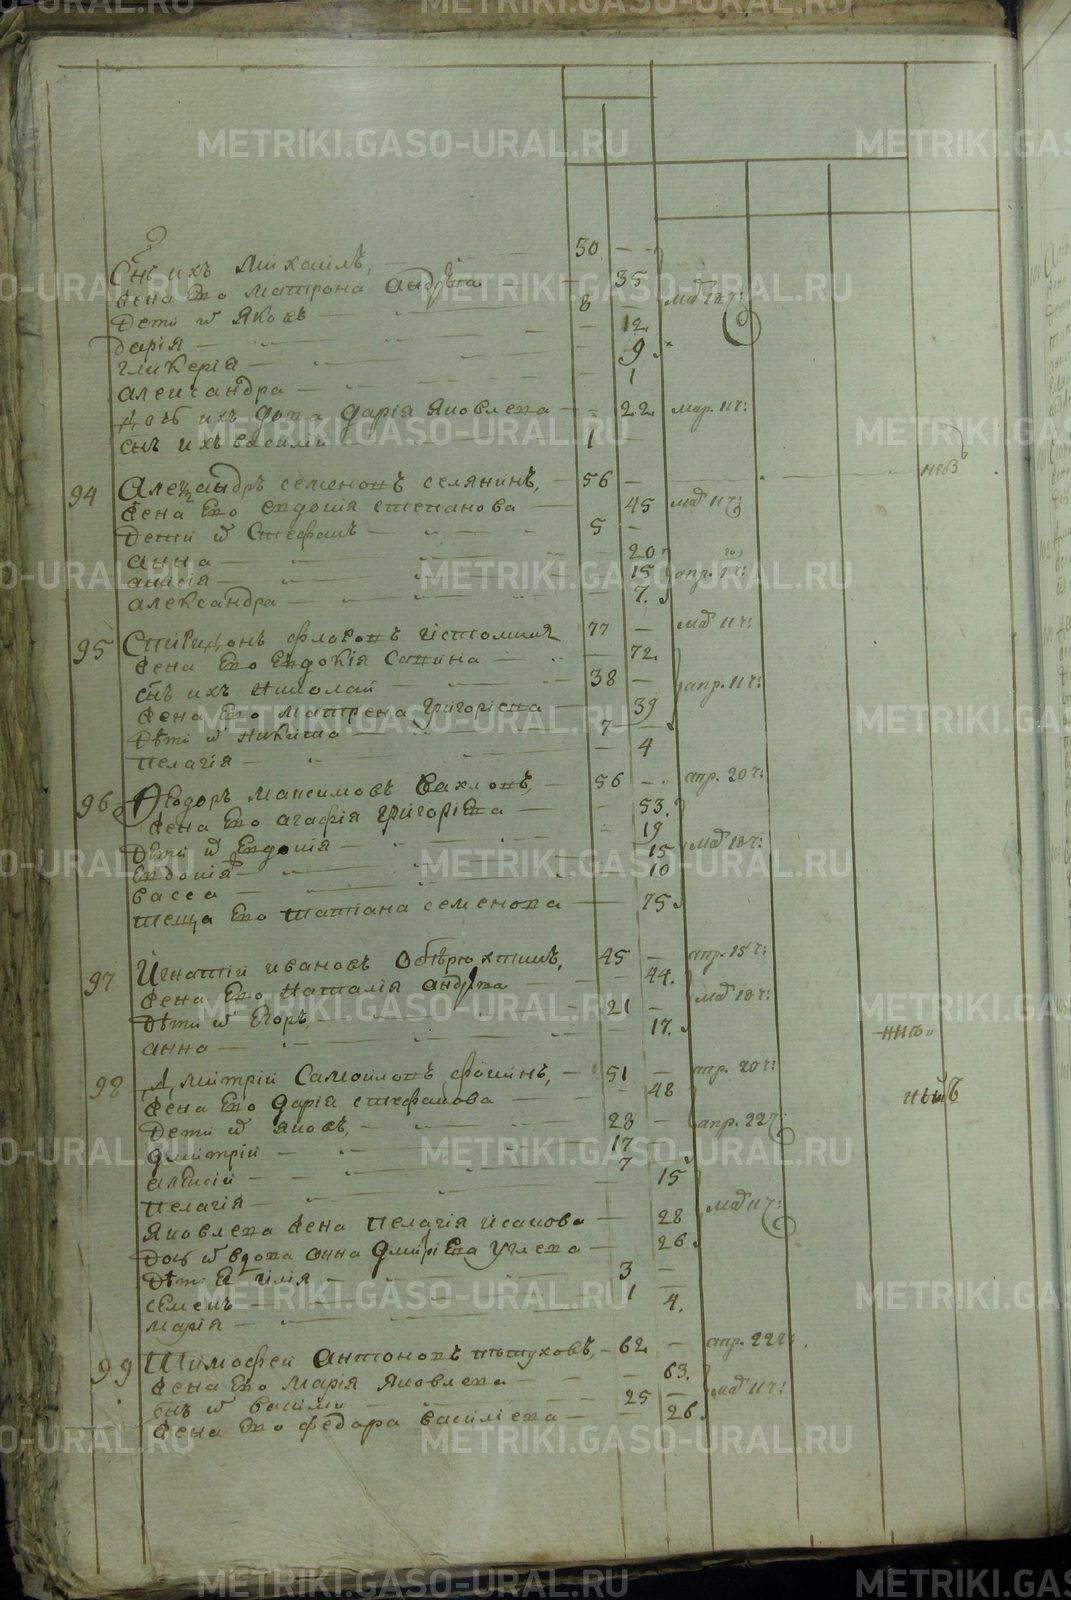 Снъ ихъ Михаилъ, 30
Жена Ево Матрона Андрѣева 35
Дети и Яковъ 8 маѣ 18 ч:
дарія 12
гликерія 9
александра 1
дарія Яковлева 22 мар. 11 ч:
снъ ихъ василии 1
94 Александръ семеновъ селянинъ, 56
Жена Ево евдокія степанова 45 11 ч:
Дети и Стефанъ 5
анна 20
анисія 15 апр.
александра 7
95 Спиридонъ флоровъ истоминъ 77 11 ч:
Жена Ево Евдокія Савина 72
снъ ихъ николай 38 апр. 11 ч:
Жена Ево матрена григоріева 39
Дѣти и никита 7
пелагія 4
96 Ѳеодоръ максимовъ Вахловъ, 56 апр. 20 ч:
Жена Ево агафія григоріева 53
Дети и Евдокія 19
Евдокія 15 18 ч:
васса 10
теща Ево татіана семенова 75
97 Игнатій ивановъ Обѣрюхтинъ, 45 апр. 15 ч:
Жена Ево наталія андрѣева 44
Дѣти и Егоръ 21 18 ч:
анна 17
98 Дмитрій Самойловъ фоминъ, 51 апр. 20 ч:
Жена Ево дарія стефанова 48
Дети и яковъ, 23 апр. 22 ч:
дмитрій 17
алексій 7
пелагія 15
Яковлева жена пелагія исакова 28 11 ч:
дочь и вдова анна дмитріева углева 26
Дѣти Ея илія 3
семенъ 1
марія 4
99 Тимофей антоновъ пѣтуховъ, 62 апр. 22 ч:
Жена Ево марія яковлева 63
снъ и василий 25 11 ч:
Жена Ево федора василіева 26
METRIKI.GASO-URAL.RU